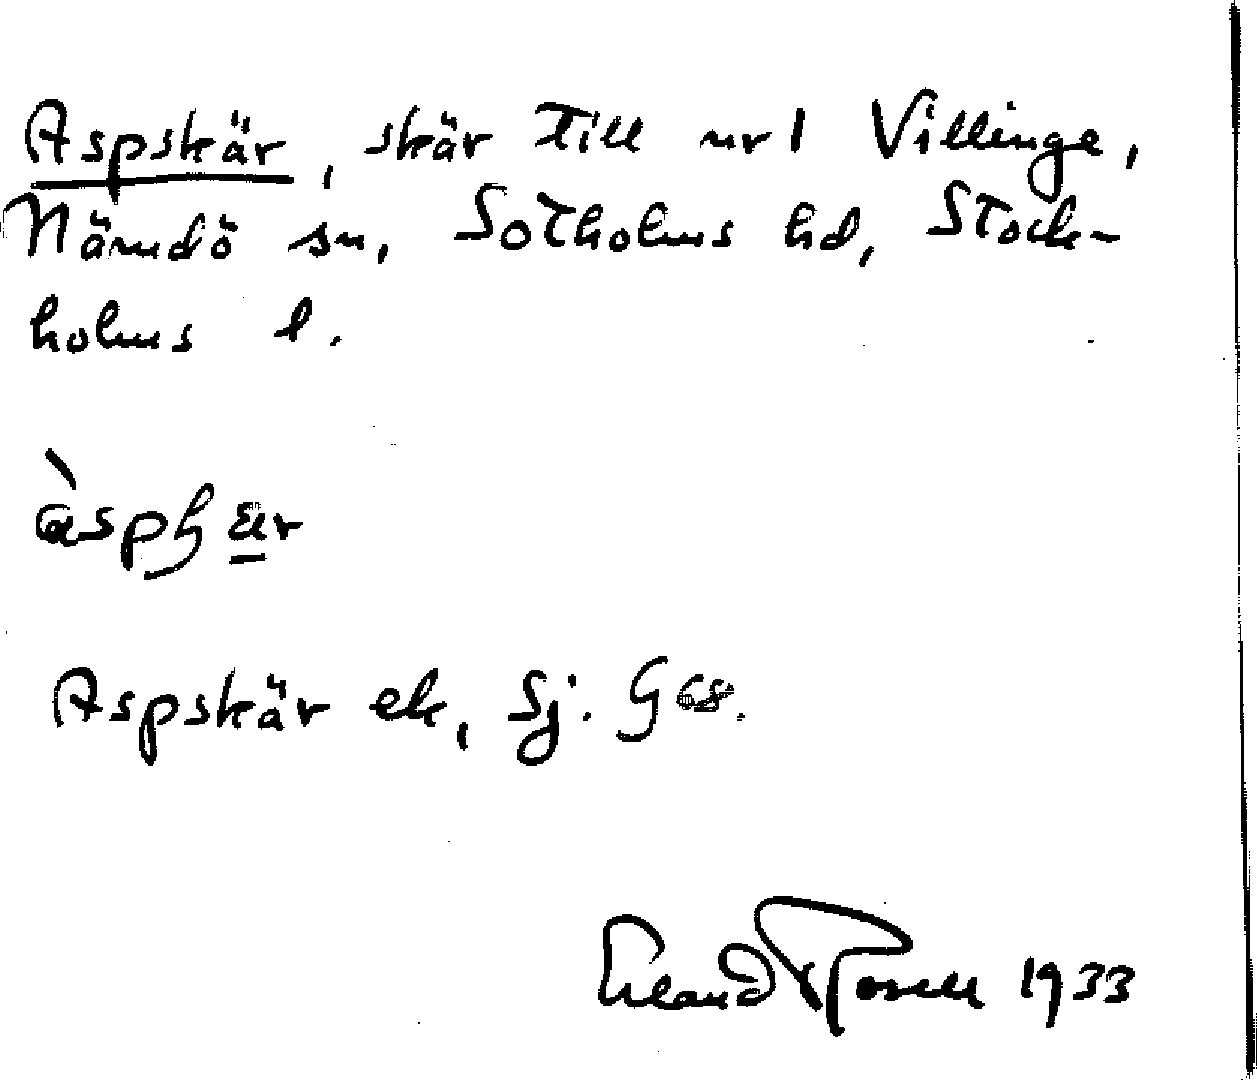 Aspskär, skär till nr 1 Villinge,
Nämdö sn, Sotholms hd, Stock-
holms l.
àspʃär
Aspskär ek, Sj. G68.
Erland Rosell 1933